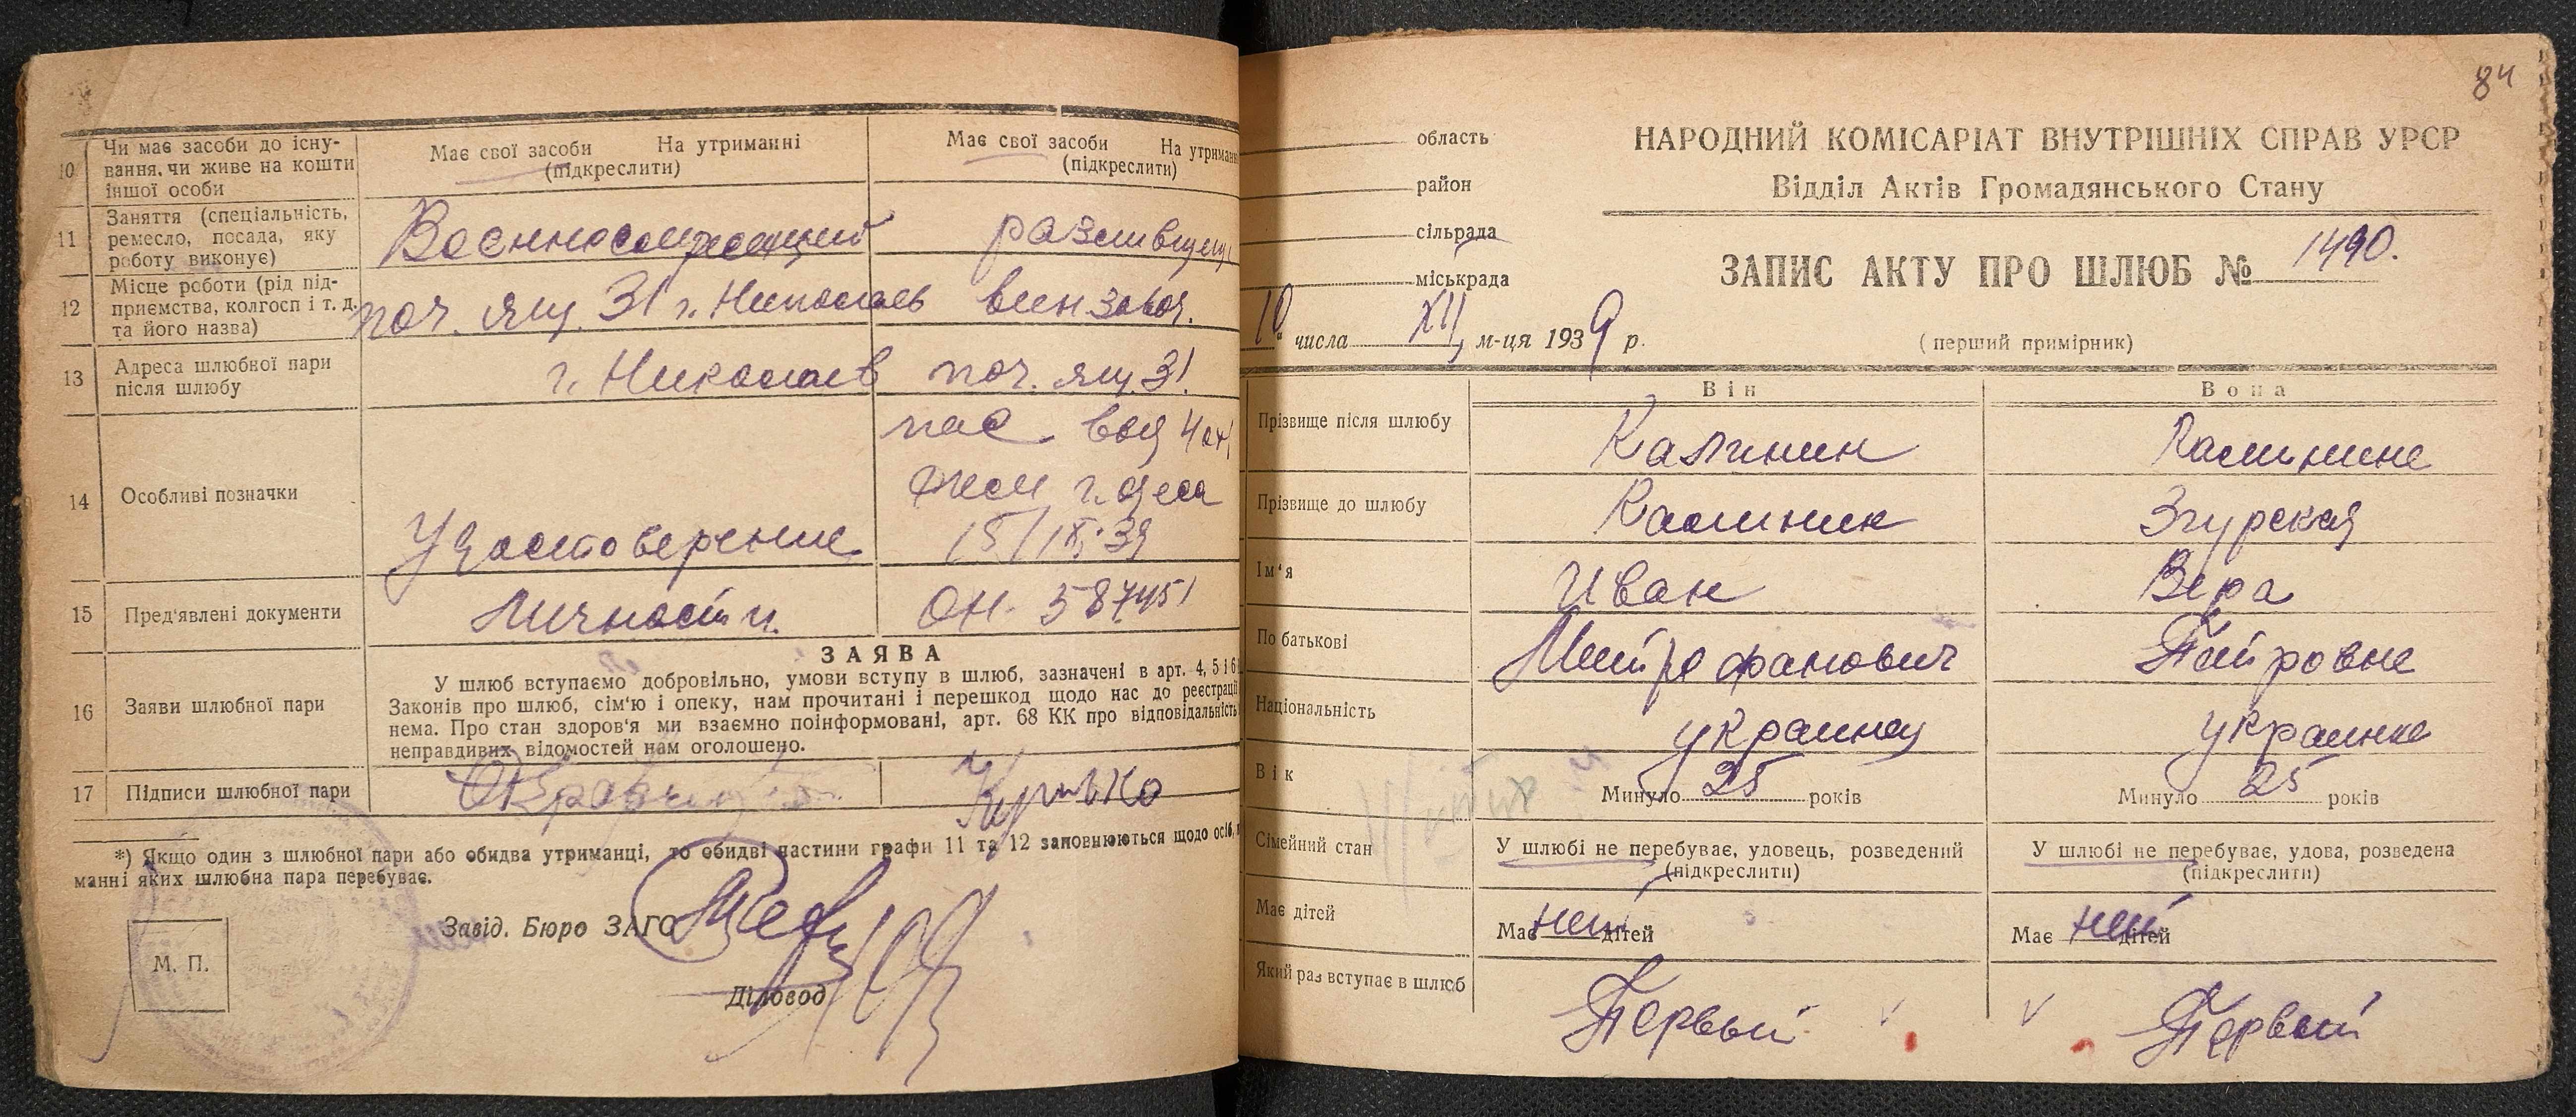 10 Чи має засоби до існу-
вання, чи живе на кошти
іншої особи
Має свої засоби На утриманні
(підкреслити)
Має свої засоби На утриман
(підкреслити)
11 Заняття (спеціальність,
ремесло, посада, яку
роботу виконує)
Военнослужащий
12 Місце роботи (рід під-
приємства, колгосп і т. д.
та його назва)
поч. ящ. 31 г. Николаев
вин завод.
13 Адреса шлюбної пари
після шлюбу
г. Николаев поч. ящ 31.
14 Особливі позначки
пас. выд 4 от
г. Одеса
15/IX-39
Удостоверение
15 Пред'явлені документи
Личности.
ОН. 587451
16 Заяви шлюбної пари
ЗАЯВА
У шлюб вступаємо добровільно, умови вступу в шлюб, зазначені в арт. 4, 5 і 6
Законів про шлюб, сім'ю і опеку, нам прочитані і перешкод щодо нас до реєстрації
нема. Про стан здоров'я ми взаємно поінформовані, арт. 68 КК про відповідальність
неправдивих відомостей нам оголошено.
17 Підписи шлюбної пари
*) Якщо один з шлюбної пари або обидва утриманці, то обидві частини графи 11 та 12 заповнюються щодо осіб,
манні яких шлюбна пара перебуває.
Завід. Бюро ЗАГС
М. П.
Діловод
84
область
район
сільрада
міськрада
НАРОДНИЙ КОМІСАРІАТ ВНУТРІШНІХ СПРАВ УРСР
Відділ Актів Громадянського Стану
ЗАПИС АКТУ ПРО ШЛЮБ № 1490.
10 числа XII м-ця 1939 р.
(перший примірник)
Він Вона
Прізвище після шлюбу Калинин Калинине
Прізвище до шлюбу Калинин Згурская
Ім'я Иван Вера
По батькові Митрофанович Петровне
Національність украинец украинке
Вік Минуло 25 років Минуло 25 років
Сімейний стан
У шлюбі не перебуває, удовець, розведений
(підкреслити)
У шлюбі не перебуває, удова, розведена
(підкреслити)
Має дітей Має нет дітей Має нет дітей
Який раз вступає в шлюб Первый Первый